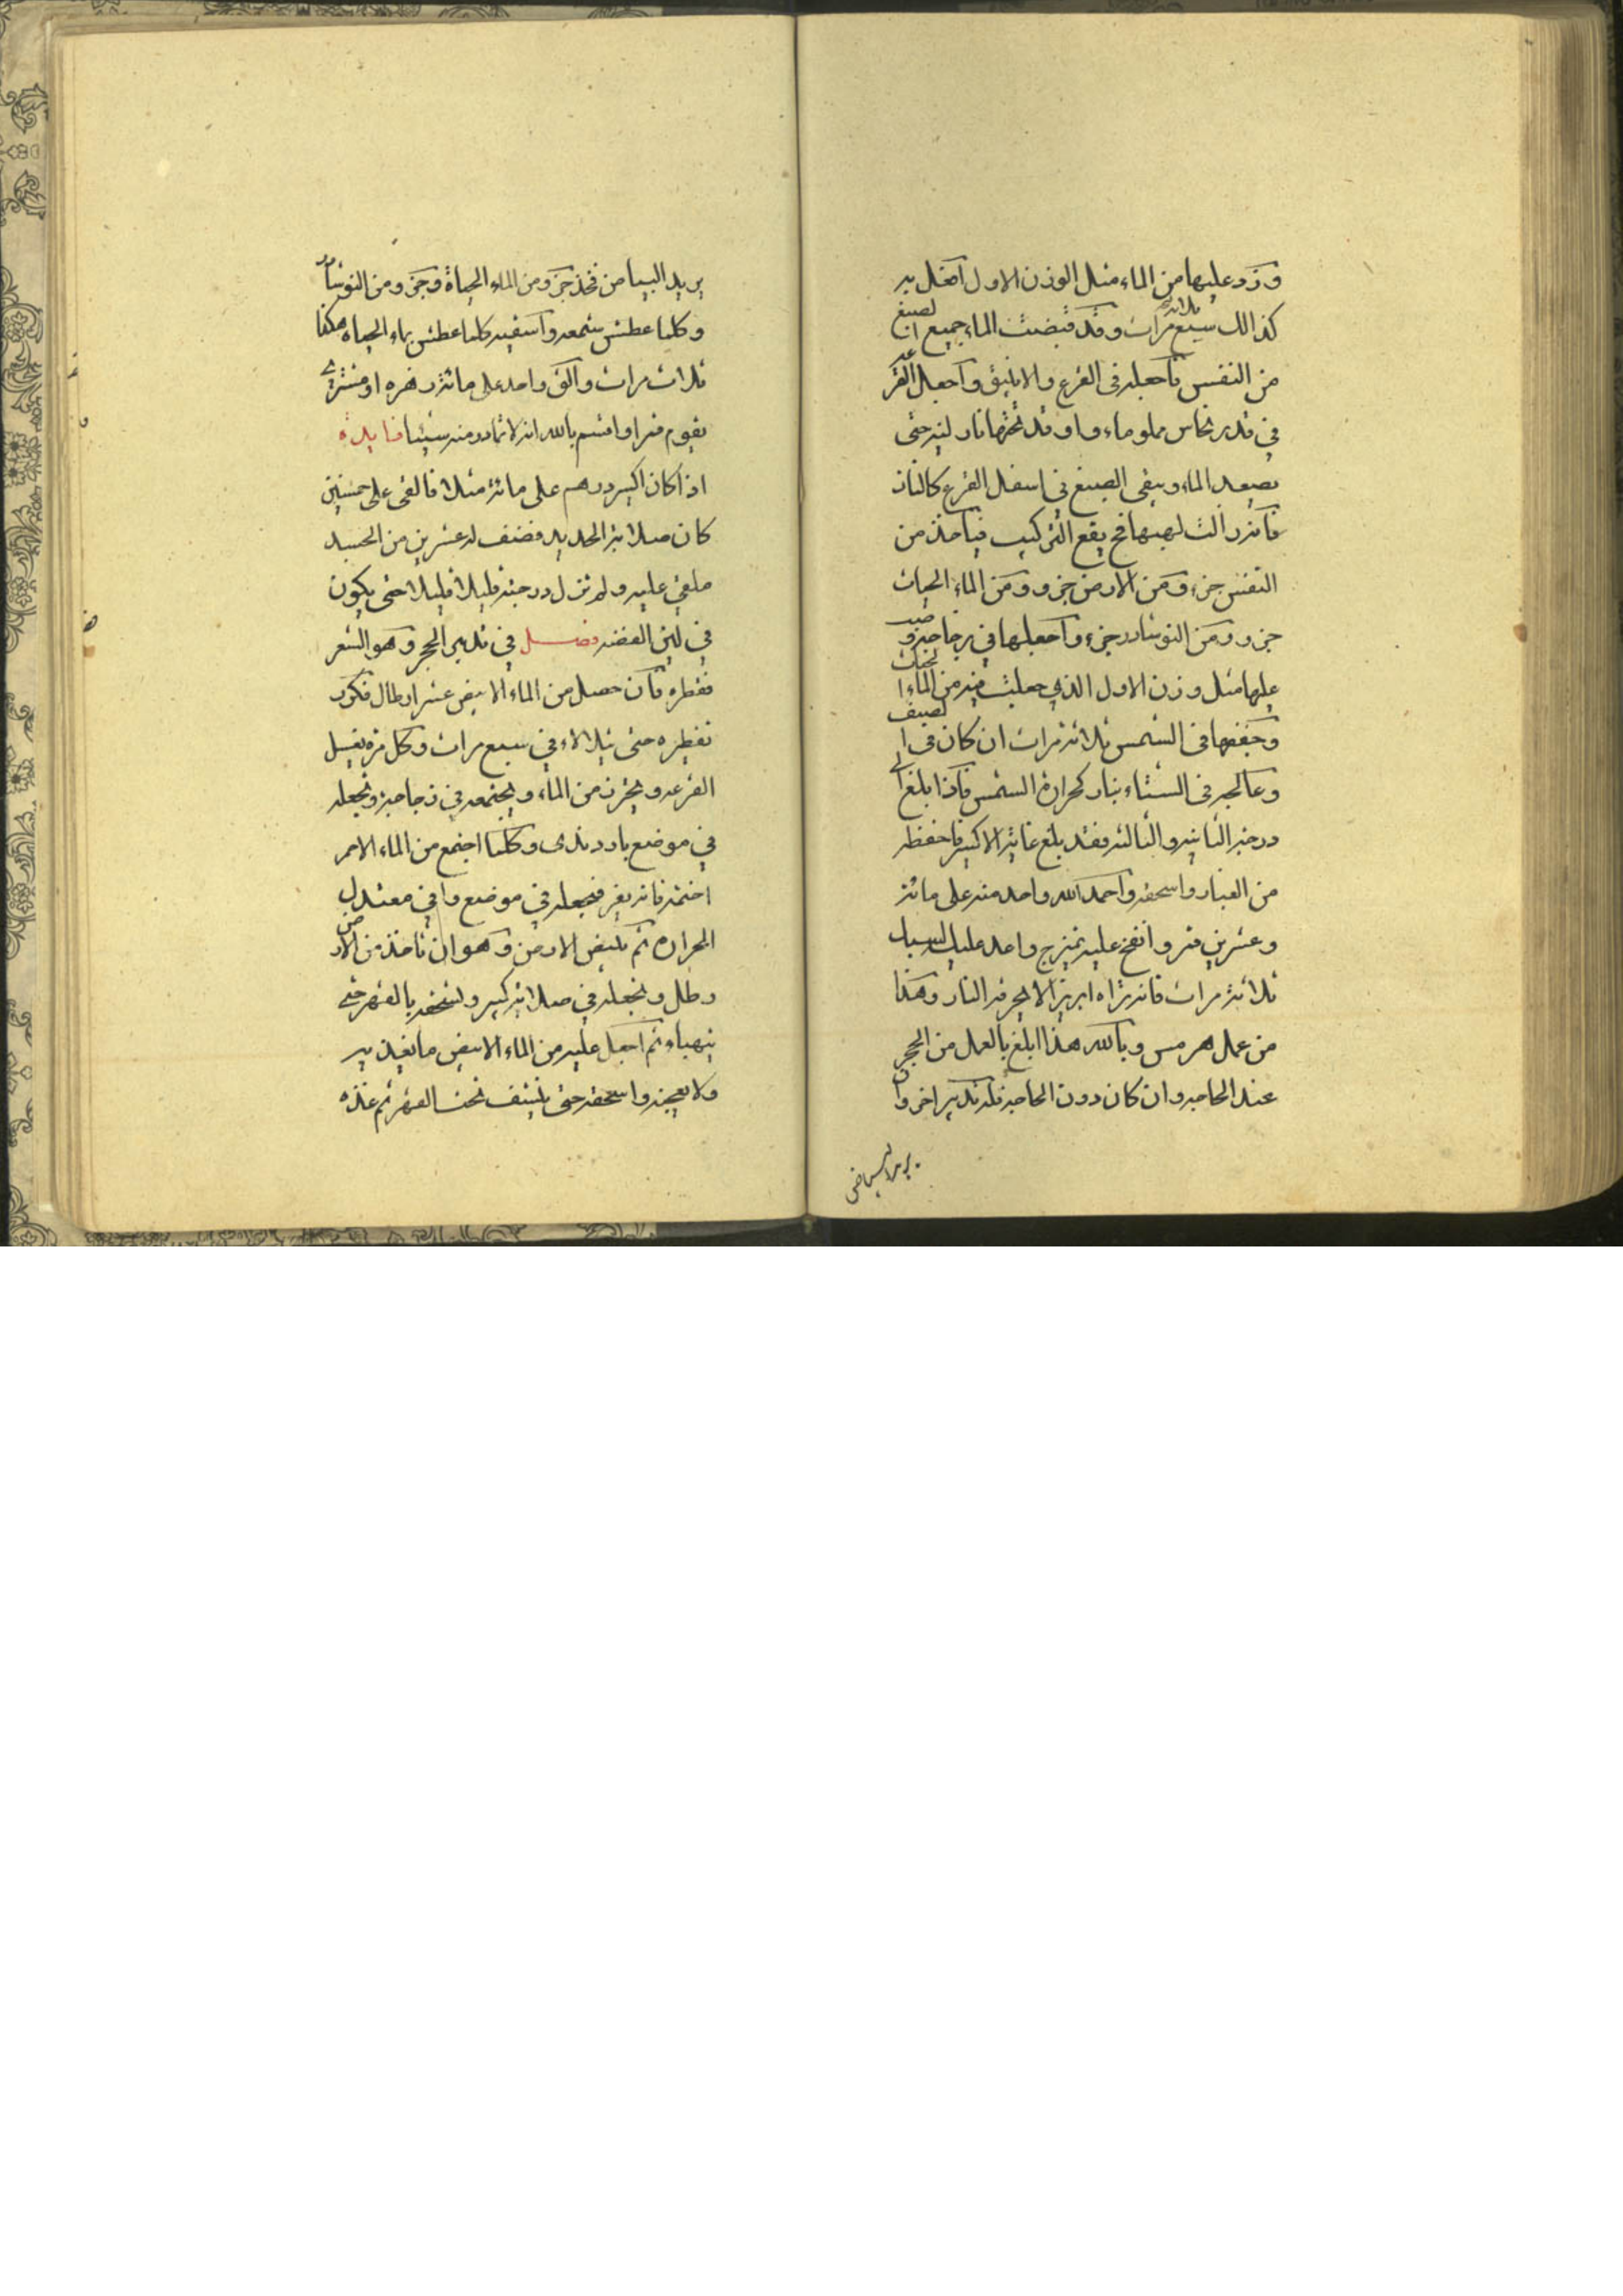 وزد عليها من الماء مثل الوزن الاول افعل به
كذالك سبع مرات وقد قبضت الماء جميع الصبغ
من النفس فاجعله في القرع والانبيق واجعل القرعه
في قدر نحاس مملو ماء واوقد تحتها نار لينه حتى
يصعد الماء ويبقى الصبغ في اسفل القرع كالنار
يقع التركيب فيأخذ من
النفس جزء ومن الارض جزو ومن الماء الحيات
جزو ومن النوشادر جزء واجعلها في زجاجه
عليها مثل وزن الاول الذي جعلت فيه من الماء
وجففها في الشمس ثلاثة مرات ان كان في الصيف
وعالجه في الشتاء بنار كحرارة الشمس فاذا بلغ الى
درجة الثانيه والثالثه فقد بلغ غاية الاكسير فاحفظه
من الغبار واسحقه واحمد الله واحد منه على مائة
وعشرين قمر وانفخ عليه يمتزج واعد عليه السبك
ثلاثة مرات فانه تراه ابريز الا يحرقه النار وهذا
من عمل هرمس وبالله هذا ابلغ بالعمل من الحجر
عند الحاجه وان كان دون الحاجه فله تدبير اخر وان
يريد البياض
يريد البياض فخذ جزو من الماء الحياة وجزو من النوشادر
وكلما عطش شمعه واسقيه كلما عطش بماء الحياه هكذا
ثلاث مرات والق واحد على مائة زهره او مشتري
يقوم قمرا واقسم بالله انه لا تغادر منه شيئا فايدة
اذا كان اكسير درهم على مائة مثلا فالقى على خمسين
كان صلابة الحديد فضف له عشرين من الجسد
ملقي عليه ولم تزل درجته قليلا قليلا حتى يكون
في لين الفضه فصل في تدبير الحجر وهو الشعر
فقطره فان حصل من الماء الابيض عشر ارطال فكرر
تقطيره حتى يتلالاء في سبع مرات وكل مرة يغسل
القرعه ويخرز من الماء ويجمعه في زجاجه وتجعله
في موضع بارد ندى وكلما اجتمع من الماء الاحمر
اختمه فانه يفر فيجعله في موضع وافي معتدل
الحراره ثم تبيض الارض وهو ان تاخذ من الارض
رطل وتجعله في صلابة كبير وتسحقه بالفهر حتى
يتهباء ثم اجعل عليه من الماء الابيض ما يغديه
ولا يعجنه واسحقه حتى ينشف تحت الفهر ثم غذه